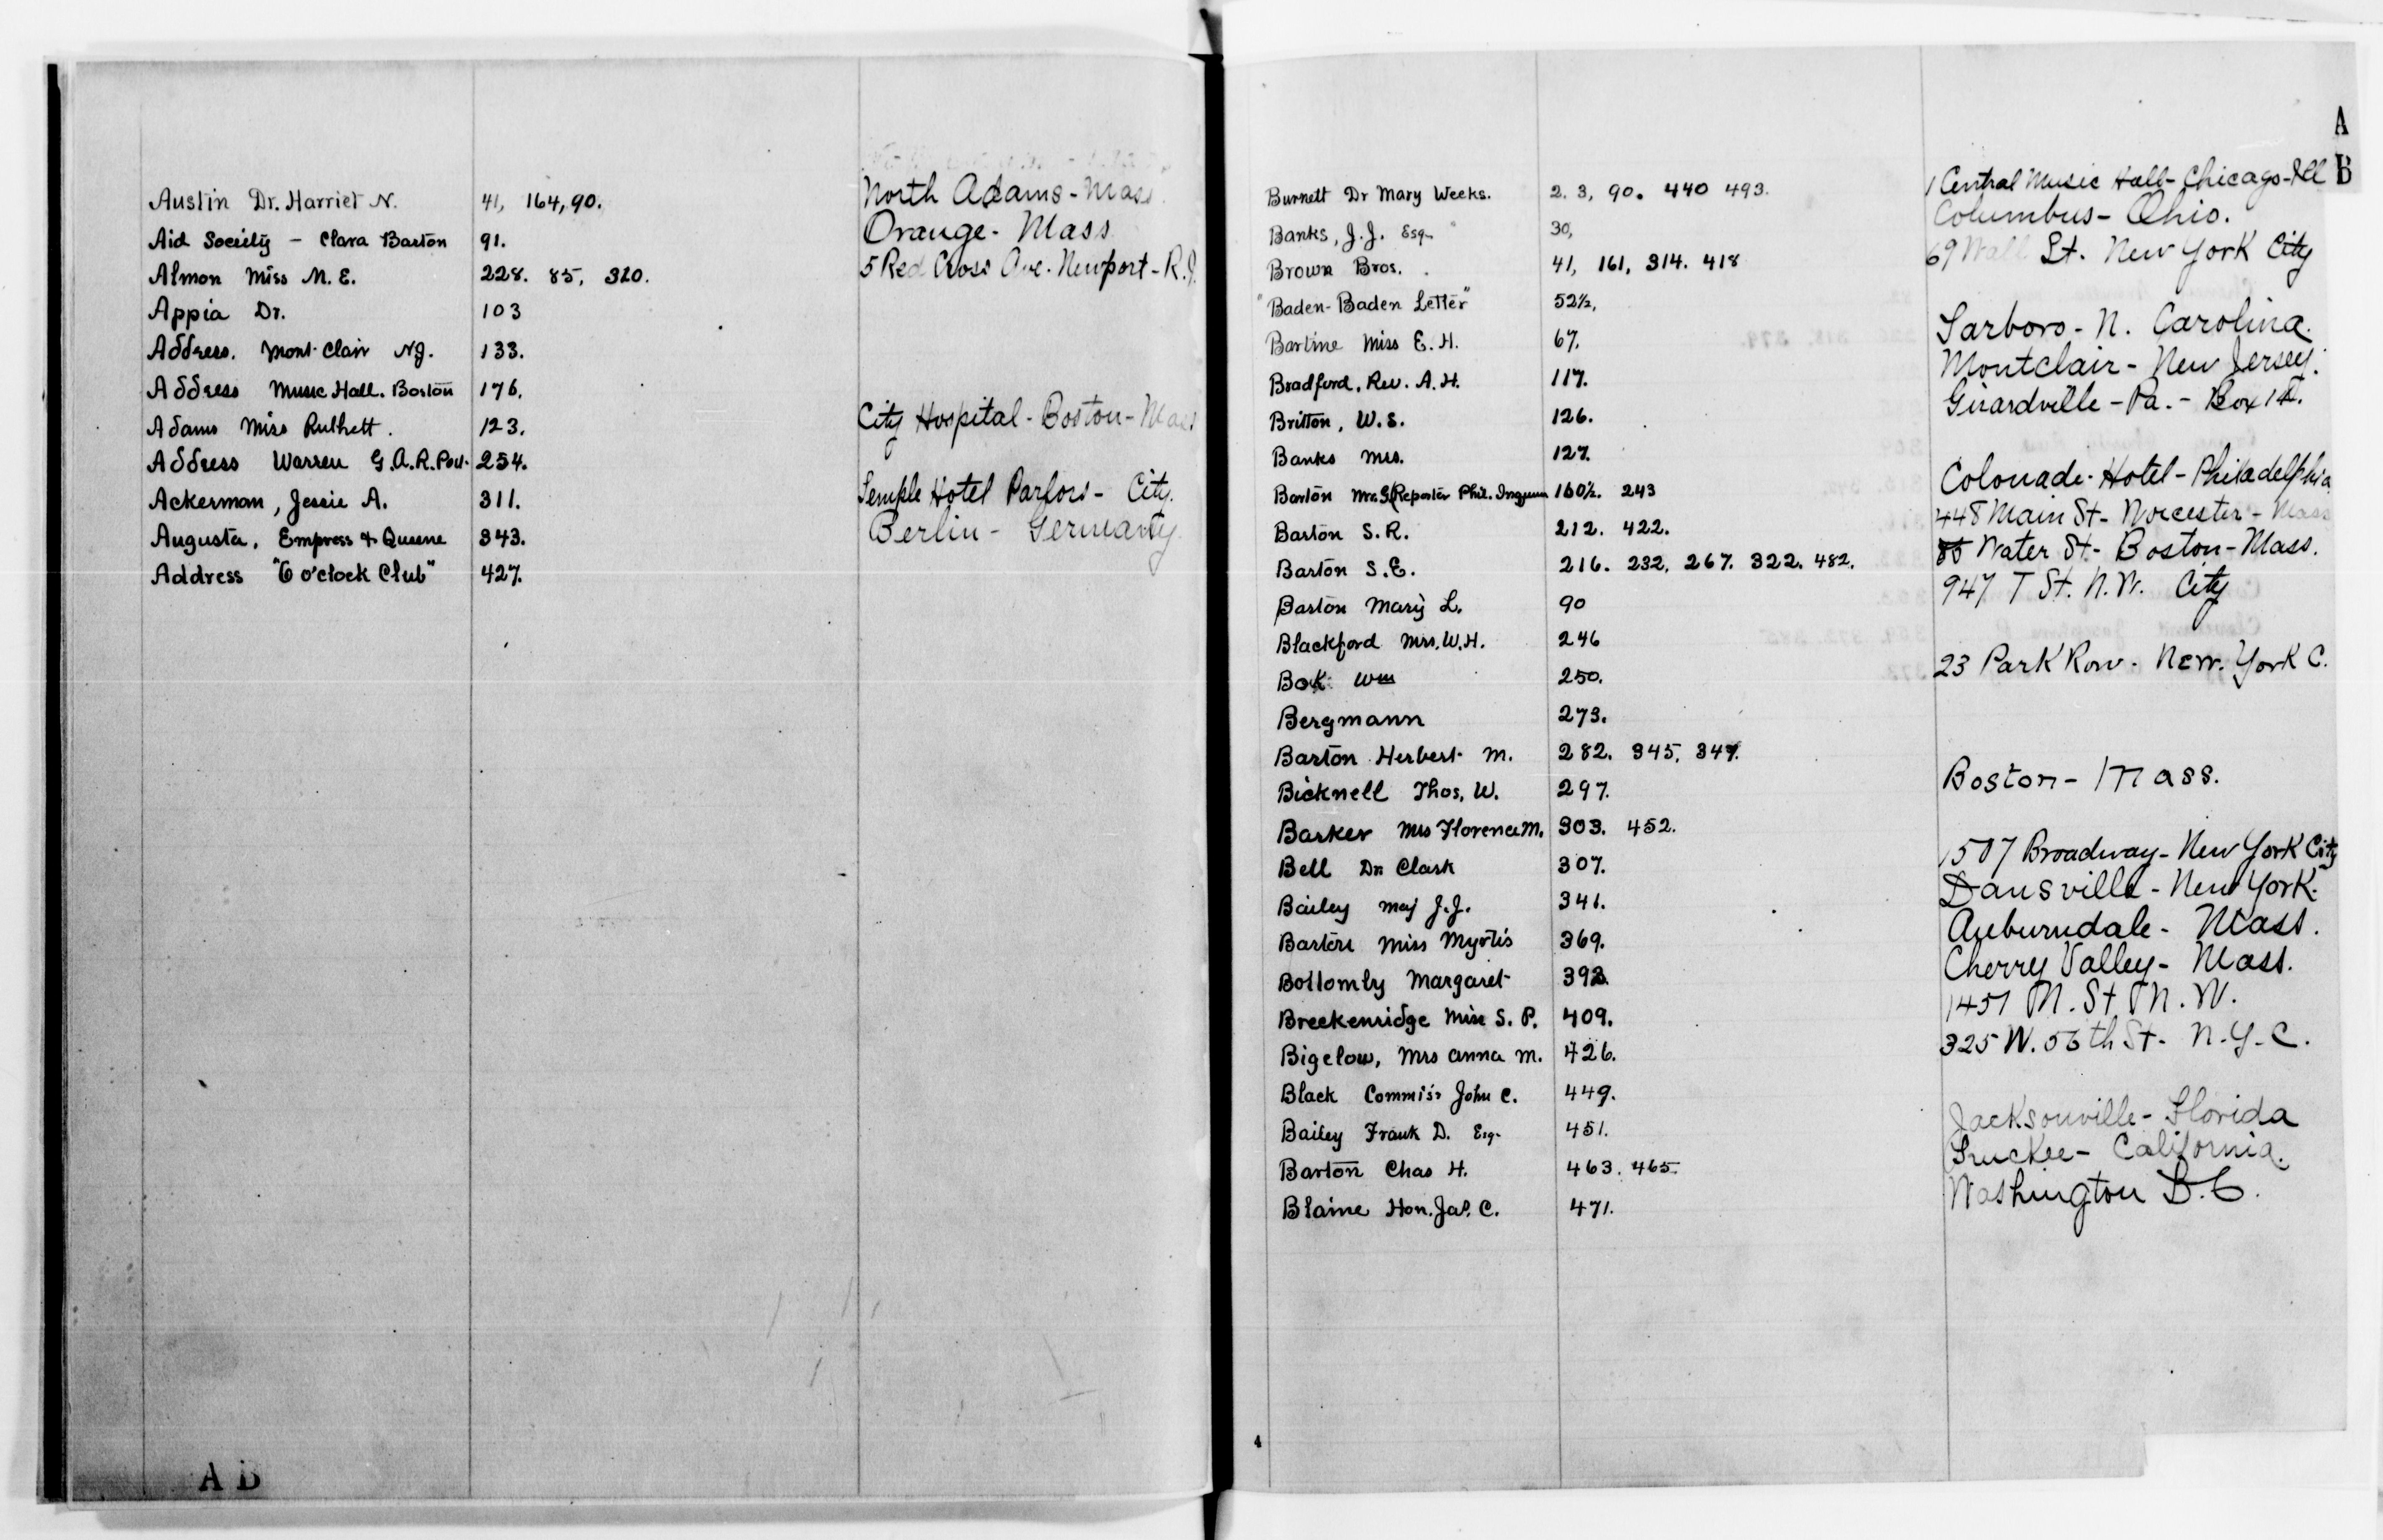 Austin Dr. Harriet N. 41, 164, 90. North Adams - Mass.
Aid Society - Clara Barton 91. Orange - Mass
Almon Miss M. E. 228. 85, 320. 5 Red Cross Ave. Newport - R.I.
Appia Dr. 103
Address. Mont-Clair NJ. 133.
Address Music Hall. Boston 176.
Adams Miss Ruthett. 123. City Hospital - Boston - Mass
Address Warren G.A.R. Post. 254.
Ackerman, Jessie A. 311. Temple Hotel Parlors - City.
Augusta, Empress & Queene 343. Berlin - Germany.
Address "6 o'clock Club" 427.
A B
A
B
Burnett Dr Mary Weeks. 2. 3, 90. 440 493. 1 Central Music Hall - Chicago - Ill
Banks, J.J. Esq 30, Columbus - Ohio.
Brown Bros. 41, 161, 314. 418 69 Wall St. New York City
"Baden-Baden Letter" 52½,
Bartine Miss E. H. 67. Tarboro - N. Carolina.
Bradford, Rev. A. H. 117. Montclair - New Jersey.
Britton, W.S. 126. Girardville - Pa. - Box
Banks Mrs. 127.
Barton Mrs. (Reporter Phil. 160½. 243 Colonade - Hotel - Philadelphia
Barton S.R. 212. 422. 448 Main St - Worcester - Mass
Barton S.E. 216. 232, 267. 322. 482. 85 Water St - Boston - Mass.
Barton Mary L. 90 947 T St. N.W. City
Blackford Mrs. W.H. 246
Bok Wm 250. 23 Park Row - New York C.
Bergmann 273.
Barton Herbert M. 282. 345, 347.
Bicknell Thos, W. 297. Boston - Mass.
Barker Mrs Florence M. 303. 452.
Bell Dr. Clark 307. 1507 Broadway - New York City
Bailey Maj J.J. 341. Dansville - New York.
Miss Myrtis 369. Auburndale - Mass.
Bottomly Margaret 393. Cherry Valley - Mass.
Breckenridge Miss S. P. 409. 1457 M. St N. W.
Bigelow, Mrs Anna M. 426. 325 W. 56th St - N.Y.C.
Black Commis'r John C. 449.
Bailey Frank D. Esq. 451. Jacksonville - Florida
Barton Chas H. 463. 465. Truckee - California.
Blaine Hon. Jas. C. 471. Washington D.C.
4